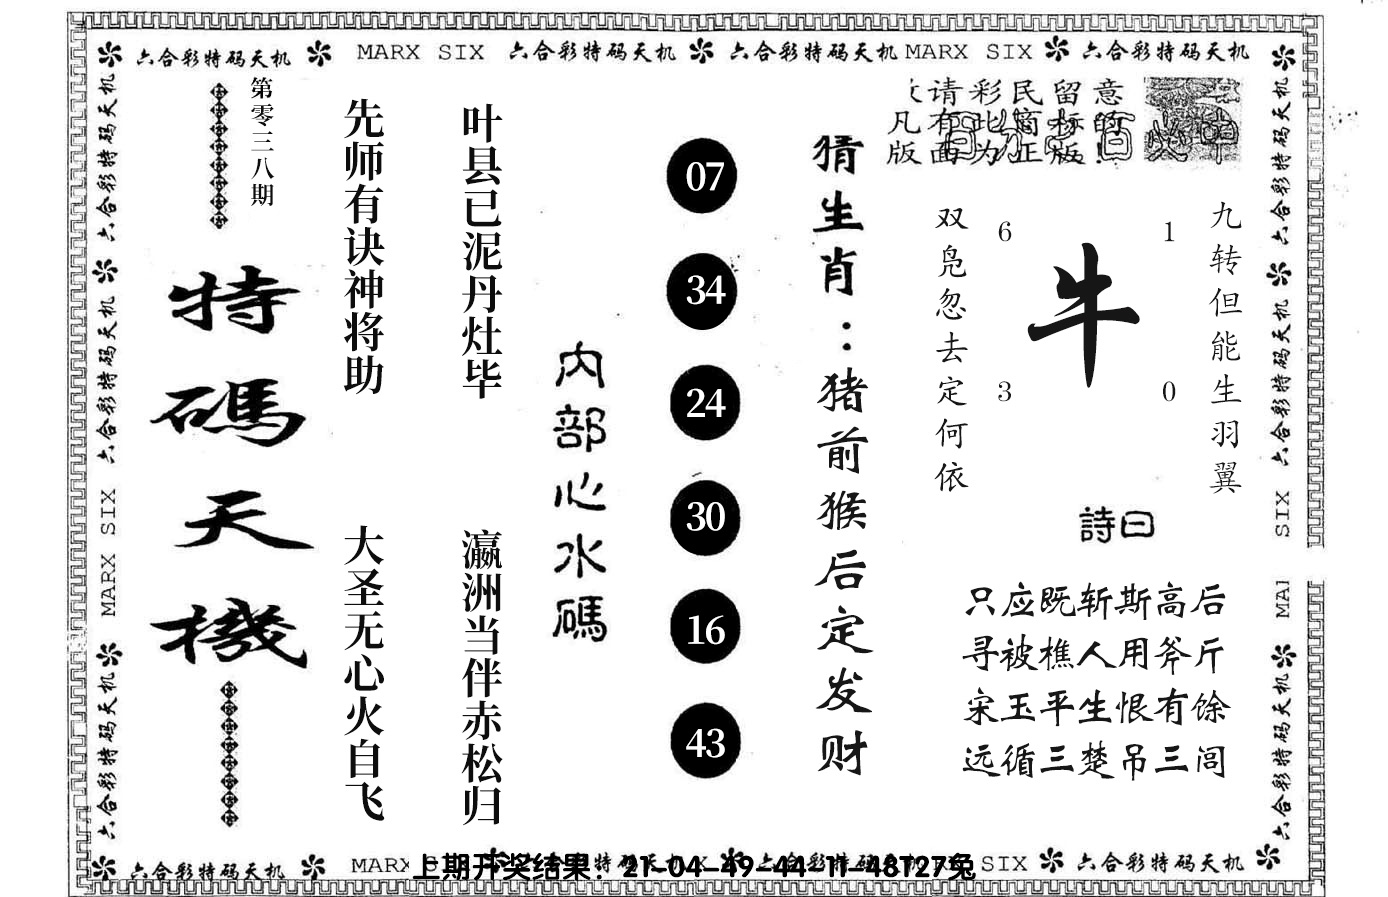 六合彩特码天机 MARX SIX 六合彩特码天机 六合彩特码天机 MARX SIX 六合彩特码天机
六合彩特码天机
六合彩特码天机
MARX SIX
六合彩特码天机
第零三八期
特碼天機
先师有诀神将助
大圣无心火自飞
叶县已泥丹灶毕
瀛洲当伴赤松归
内部心水碼
07
34
24
30
16
43
猜生肖：猪前猴后定发财
请彩民留意
凡有此窗标的
版面为正版！
九转但能生羽翼
双凫忽去定何依
6
1
牛
3
0
詩曰
只应既斩斯高后
寻被樵人用斧斤
宋玉平生恨有馀
远循三楚吊三闾
六合彩特码天机
六合彩特码天机
SIX
MA
六合彩特码天机
六合彩特码天机 MARX
上期开奖结果：21-04-49-44-11-48T27兔
SIX 六合彩特码天机